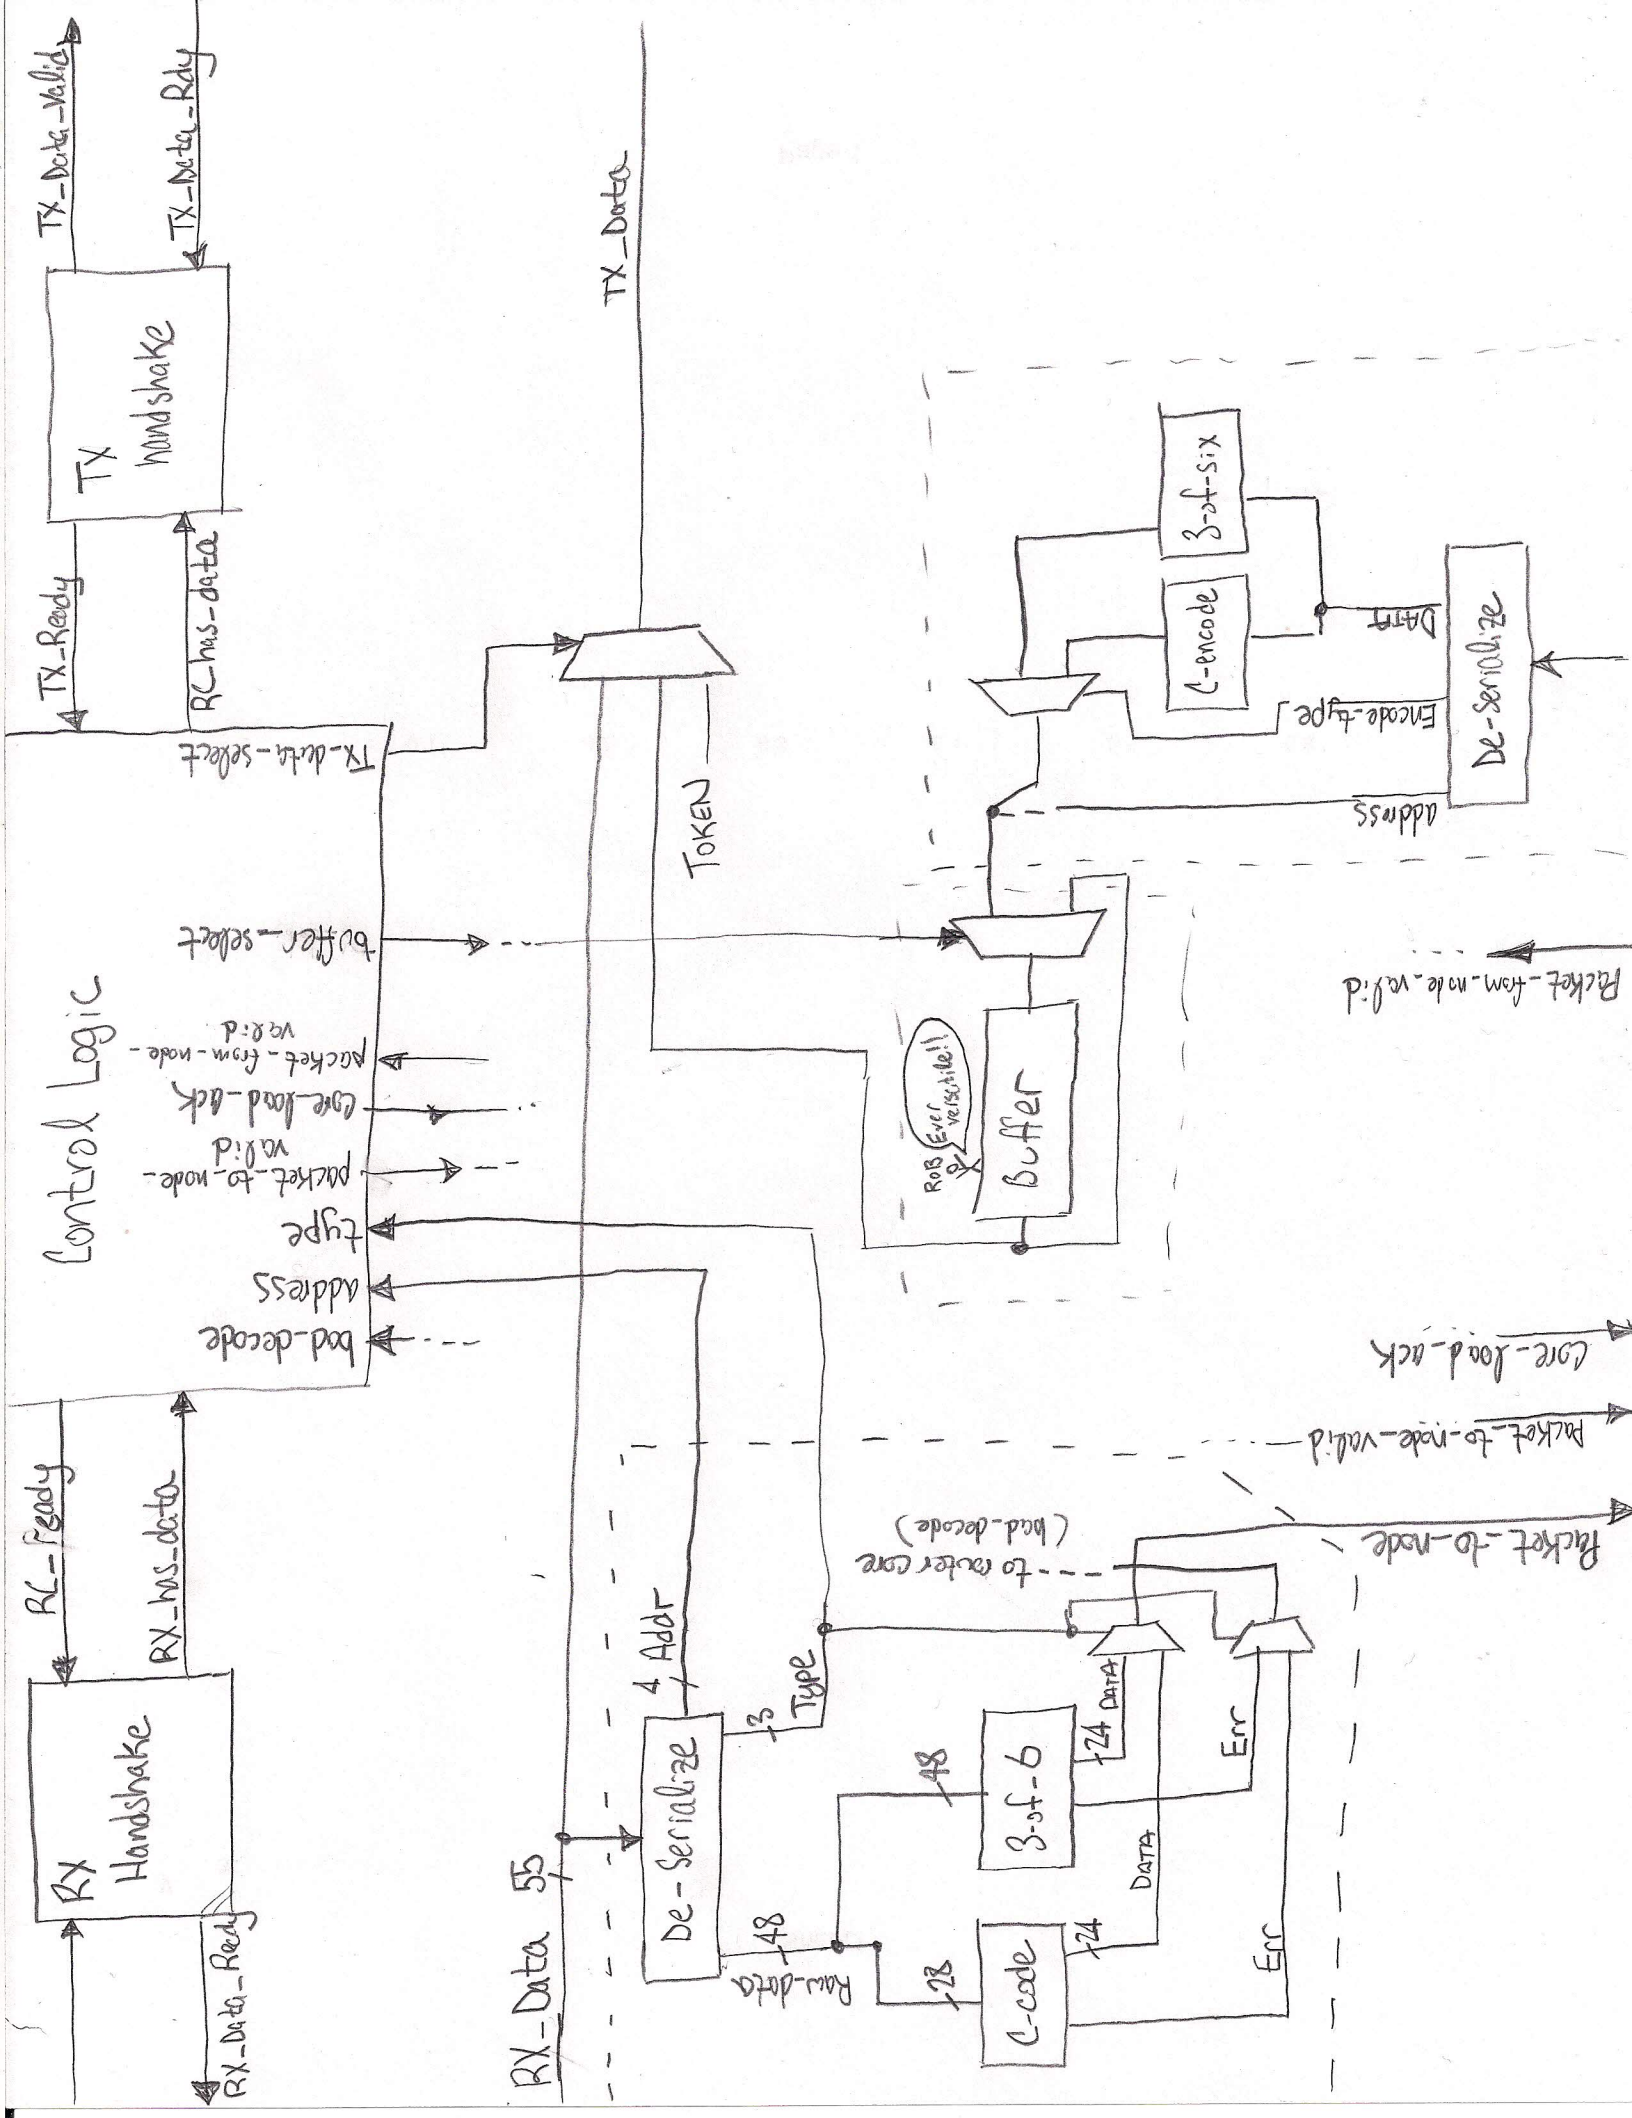 RX
Handshake
RX_Data_Ready
RC_ready
RX_has_data
Control Logic
bad_decode
address
type
packet_to_node_
valid
core_load_ack
packet_from_node_
valid
buffer_select
Tx_data_select
TX_Ready
RC_has_data
TX
handshake
TX_Data_Valid
TX_Data_Rdy
RX_Data
55
TX_Data
TOKEN
De-Serialize
4
Addr
3
Type
48
Raw_data
48
28
3-of-6
C-code
24
DATA
24
DATA
Err
Err
to router core
(bad_decode)
Packet_to_node
Packet_to_node_valid
Core_load_ack
Packet_from_node_valid
ROB
Ever
versctile!!
Buffer
3-of-six
C-encode
DATA
Encode_type
address
De-Serialize